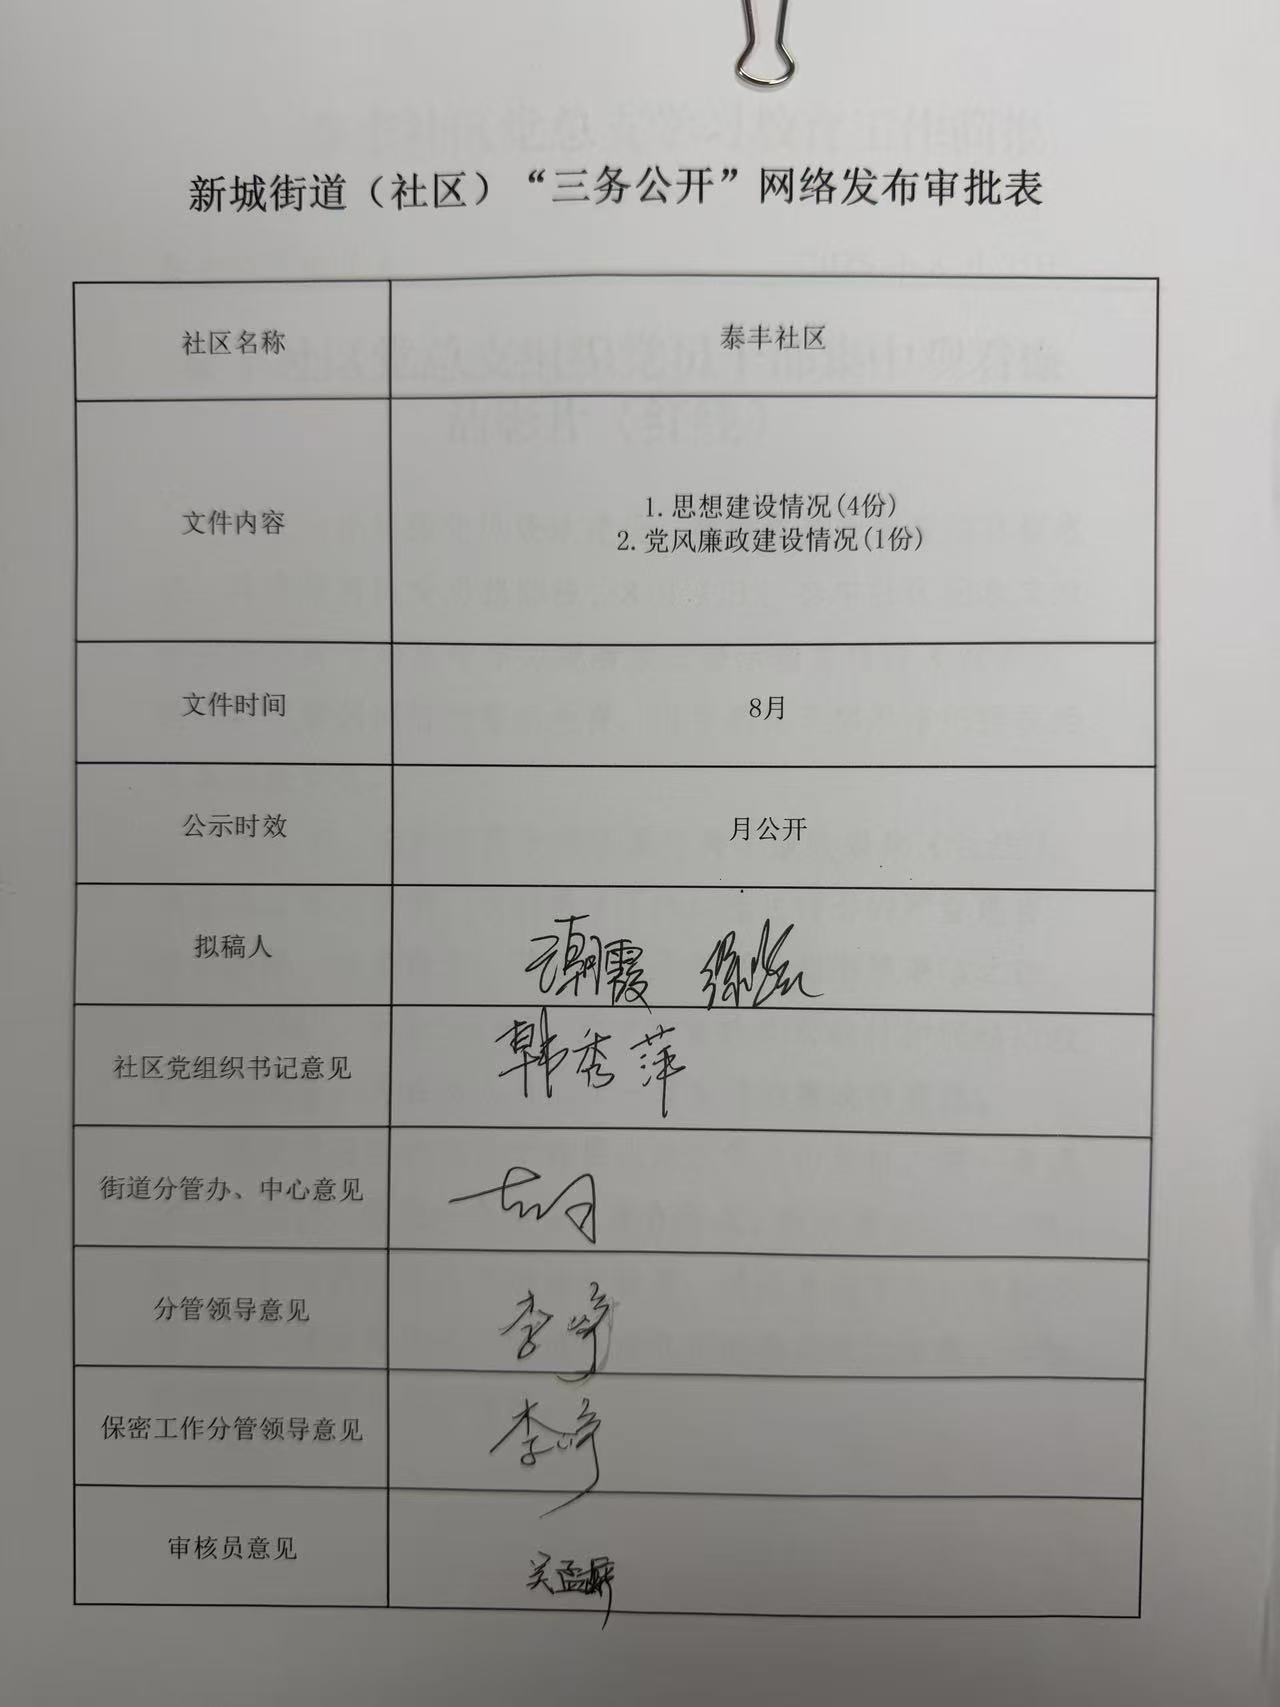 新城街道（社区）“三务公开”网络发布审批表
社区名称 泰丰社区
文件内容 1.思想建设情况(4份)
2.党风廉政建设情况(1份)
文件时间 8月
公示时效 月公开
拟稿人
社区党组织书记意见 韩秀萍
街道分管办、中心意见
分管领导意见 李
保密工作分管领导意见 李
审核员意见 吴孟